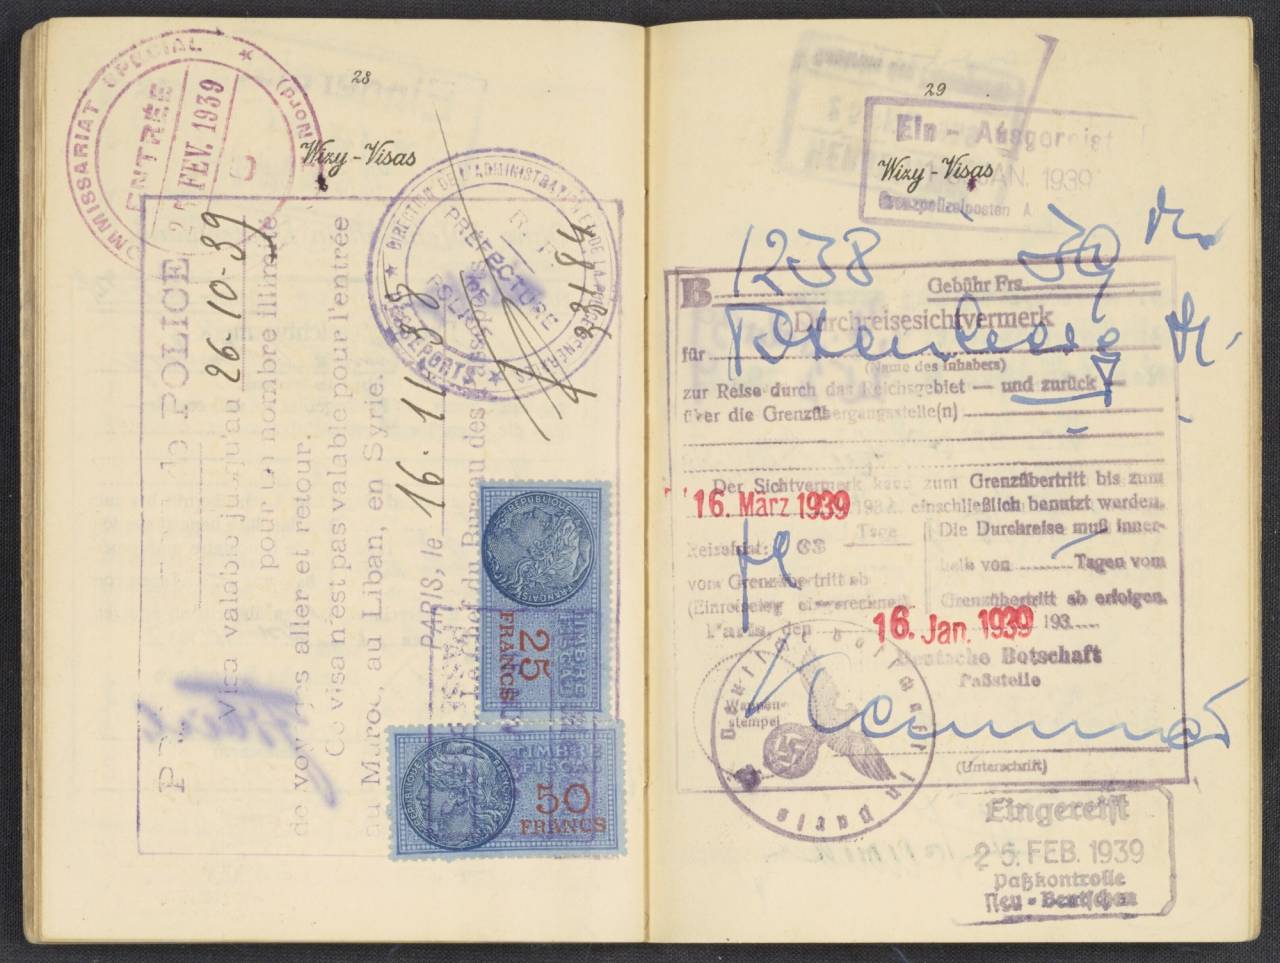 28
Wizy-Visas
COMMISSARIAT SPECIAL
(Nord)
ENTRÉE
FEV. 1939
POLICE
Visa valable jusqu'au 26-10-39
pour un nombre illimité
de voyages aller et retour.
Ce visa n'est pas valable pour l'entrée
au Maroc, au Liban, en Syrie.
PARIS, le 16. 11. 38
Le Chef du Bureau des Passeports
PREFECTURE
PASSEPORTS
R. F.
REPUBLIQUE FRANÇAISE
TIMBRE FISCAL
25
FRANCS
TIMBRE
FISCAL
50
FRANCS
29
Wizy-Visas
Ein - Ausgereist
JAN. 1939
Grenzpolizeiposten A.
B 1238
Gebühr Frs.
Durchreisesichtvermerk
für
(Name des Inhabers)
zur Reise durch das Reichsgebiet — und zurück —
über die Grenzübergangsstelle(n)
Der Sichtvermerk kann zum Grenzübertritt bis zum
16. März 1939
einschließlich benutzt werden.
Tage
Die Durchreise muß inner-
halb von Tagen vom
Grenzübertritt ab erfolgen.
Reisefrist:
vom Grenzübertritt ab
(Einreisetag eingerechnet)
Paris, den 16. Jan. 1939 193
Deutsche Botschaft
Paßstelle
Wappen-
stempel
Deutsche Botschaft in Paris
(Unterschrift)
Eingereist
26. FEB. 1939
Paßkontrolle
Neu-Bentschen